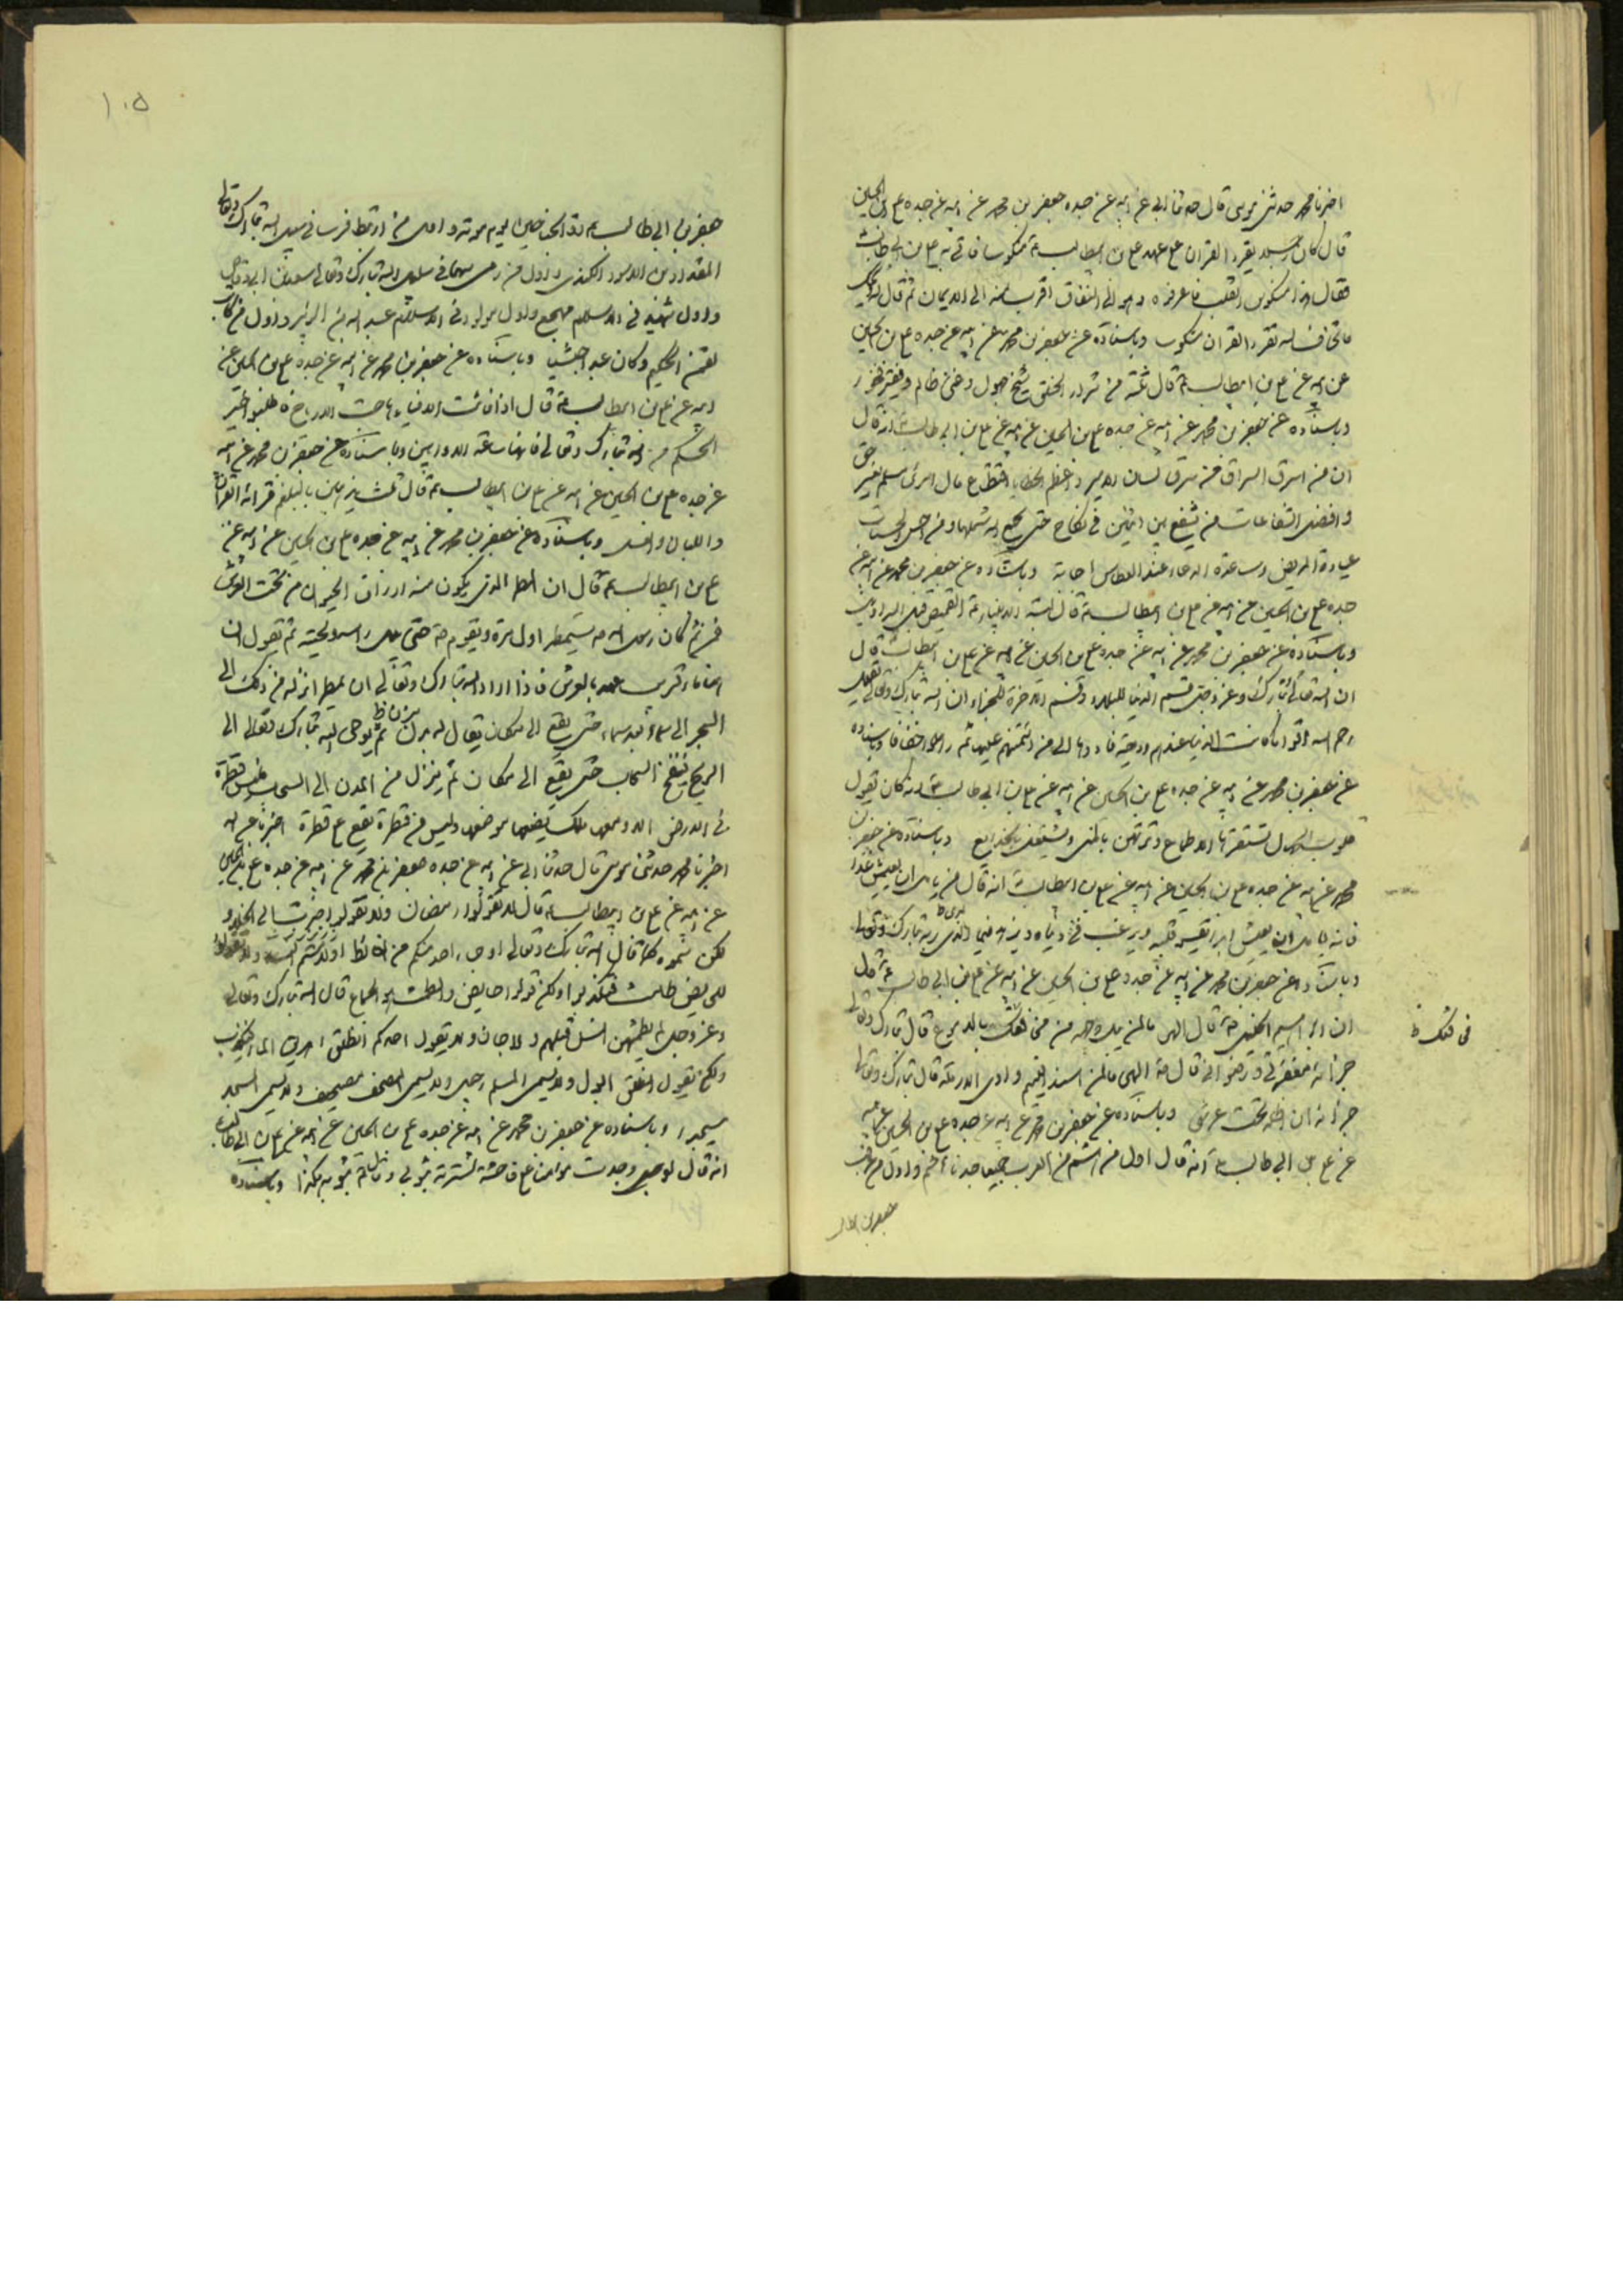 اخبرنا محمد حدثني موسى قال حدثنا ابي عن ابيه عن جده جعفر بن محمد عن ابيه عن جده علي بن الحسين
قال كان رجل يقرء القران على عهد علي بن ابيطالب ع منكوسا فاتي به علي بن ابي طالب
فقال هذا منكوس القلب فاعرفوه وهو الى النفاق اقرب منه الى الايمان ثم قال
ما تخاف الله تقرء القران منكوسا وباسناده عن جعفر بن محمد عن ابيه عن جده علي بن الحسين
عن ابيه عن علي بن ابيطالب ع قال ثلثة من شرار الخلق شيخ جهول وغني ظالم وفقير فخور
وباسناده عن جعفر بن محمد عن ابيه عن جده علي بن الحسين عن ابيه عن علي بن ابي طالب انه قال
ان من اسرق السراق من سرق لسان الامير واعظم الخطايا اقتطاع مال امرئ مسلم بغير حق
وافضل الشفاعات من يشفع بين اثنين في نكاح حتى يجمع الله شملهما ومن احسن الحسنات
عيادة المريض وساعة الدعاء عند العطاس اجابة وباسناده عن جعفر بن محمد عن ابيه عن
جده علي بن الحسين عن ابيه عن علي بن ابيطالب ع قال لبسة الانبياء القميص قبل السراويل
وباسناده عن جعفر بن محمد عن ابيه عن جده علي بن الحسين عن ابيه عن علي بن ابيطالب قال
ان الله تعالى تبارك وعز وجل قسم الدنيا للبلاء وقسم الاخرة للجزاء وان الله تبارك وتعالى يقول
رحم الله اقواما كانت الدنيا عندهم وديعة فادوها الى من ائتمنهم عليها ثم راحوا خفافا وباسناده
عن جعفر بن محمد عن ابيه عن جده علي بن الحسين عن ابيه عن علي بن ابي طالب ع انه كان يقول
قلوب الجهال تستفزها الاطماع وترتهن بالمنى وتستعلق بالخدايع وباسناده عن جعفر بن
محمد عن ابيه عن جده علي بن الحسين عن ابيه عن علي بن ابيطالب انه قال من يامل ان يعيش غدا
فانه يامل ان يعيش ابدا يقسو قلبه ويرغب في دنياه ويزهد فيما الذي ربه تبارك وتعالى
وباسناده عن جعفر بن محمد عن ابيه عن جده علي بن الحسين عن ابيه عن علي بن ابي طالب ع قال
ان ابراهيم الخليل ع قال الهي ما لمن بل وجهه من مخافتك بالدموع قال تبارك وتعالى
في فتنك ظ
جزائه مغفرتي ورضواني قال ع الهي ما لمن اسند اليتيم واوى الارملة قال تبارك وتعالى
جزائه ان اظله تحت عرشي وباسناده عن جعفر بن محمد عن ابيه عن جده علي بن الحسين عن ابيه
عن علي بن ابي طالب ع انه قال اول من اسلم من العرب جميعا جدنا هاشم واول من
جعفر بن ابي طالب
جعفر بن ابي طالب ع ذو الجناحين يوم موتة واول من ارتبط فرسا في سبيل الله تبارك وتعالى
المقداد بن الاسود الكندي واول من رمى سهما في سبيل الله تبارك وتعالى سعد بن ابي وقاص
واول شهيد في الاسلام مهجع واول مولود في الاسلام عبد الله بن الزبير واول من كاتب
لقمن الحكيم وكان عبدا حبشيا وباسناده عن جعفر بن محمد عن ابيه عن جده علي بن الحسين عن
ابيه عن علي بن ابيطالب ع قال اذا فائت الافياء وهاجت الارياح فاطلبوا الخير
الحكم من الله تبارك وتعالى فانها ساعة الاوابين وباسناده عن جعفر بن محمد عن ابيه
عن جده علي بن الحسين عن ابيه عن علي بن ابيطالب ع قال ثلث يذهبن بالبلغم قرائة القران
واللبان والعسل وباسناده عن جعفر بن محمد عن ابيه عن جده علي بن الحسين عن ابيه عن
علي بن ابيطالب ع قال ان المطر الذي يكون منه ارزاق الحيوان من تحت العرش
فمن ثم كان رسول الله ص يستمطر اول مرة ويقوم ص حتى يبل راسه ولحيته ثم يقول ان
انه ماء قريب عهد بالعرش فاذا اراد الله تبارك وتعالى ان يمطر انزله من ذلك الى
البحر الى سماء بعد سماء حتى يقع الى مكان يقال له مزن ثم يوحى الله تبارك وتعالى الى
الريح فينفخ السحاب حتى يقع الى مكان ثم ينزل من المزن الى السحاب فليس قطرة
في الارض الا ومعها ملك يضعها موضعها وليس من قطرة تقع على قطرة اخبرنا عبد الله
اخبرنا محمد حدثني موسى قال حدثنا ابي عن ابيه عن جده جعفر بن محمد عن ابيه عن جده علي بن الحسين
عن ابيه عن علي بن ابيطالب ع قال لا تقولوا رمضان ولا تقولوا خرجت الى الخلاء و
لكن سموه كما قال الله تبارك وتعالى او جاء احد منكم من الغائط او لامستم النساء ولا تقولوا
للحايض طامث فتكذبوا ولكن قولوا حايض والطمث الجماع قال الله تبارك وتعالى
وعز وجل لم يطمثهن انس قبلهم ولا جان ولا يقول احدكم انطلق اهريق الماء فيكذب
ولكن يقول انطلق ابول ولا يسمى المسلم رجيل ولا يسمى المصحف مصيحف ولا يسمى المسجد
مسيجد وباسناده عن جعفر بن محمد عن ابيه عن جده علي بن الحسين عن ابيه عن علي بن ابي طالب
انه قال لو وجدت مؤمنا على فاحشة لسترته بثوبي وقال ع بثوبه هكذا وباسناده
١٠٥